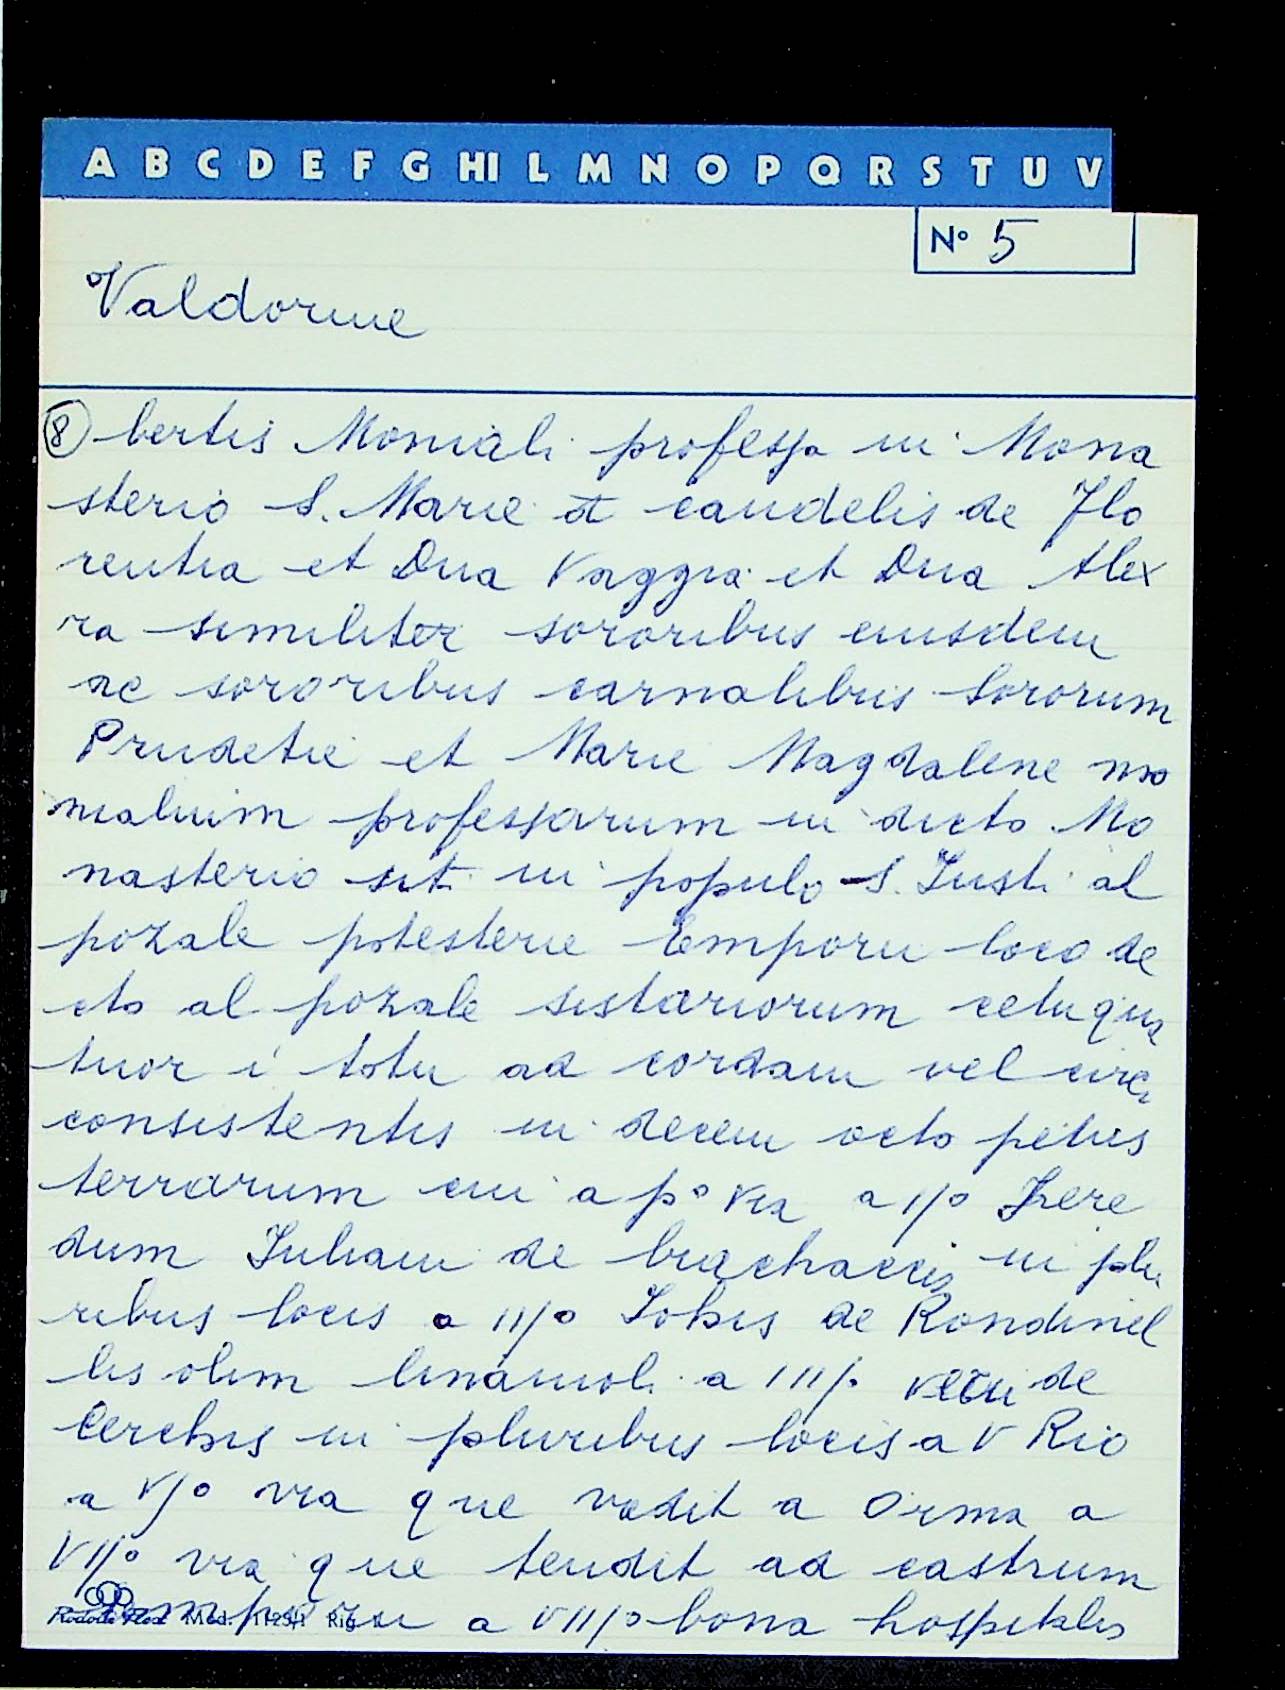 A B C D E F G HI L M N O P Q R S T U V
N° 5
Valdorme
8 bertis Moniali professa in Mona
sterio S. Marie et candelis de Flo
rentia et Dna Vaggia et Dna Alex
ra similiter sororibus eiusdem
ac sororibus carnalibus Sororum
Prudetie et Marie Magdalene mo
nialium professarum in dicto Mo
nasterio sit in populo S. Iusti al
pozale potesterie Emporii loco de
cto al pozale sistariorum cetuqua
tuor i totu ad cordam vel circa
consistentis in decem octo petiis
terrarum cui a p° via a II° Here
dum Iuliani de brachaccis in plu
ribus locis a III° Iohis de Rondinel
lis olim a IIII° de
Cerchis in pluribus locis a V Rio
a VI° via que vadit a Orma a
VII° via que tendit ad castrum
Emporii a VIII° bona hospitalis
Mod. Rig